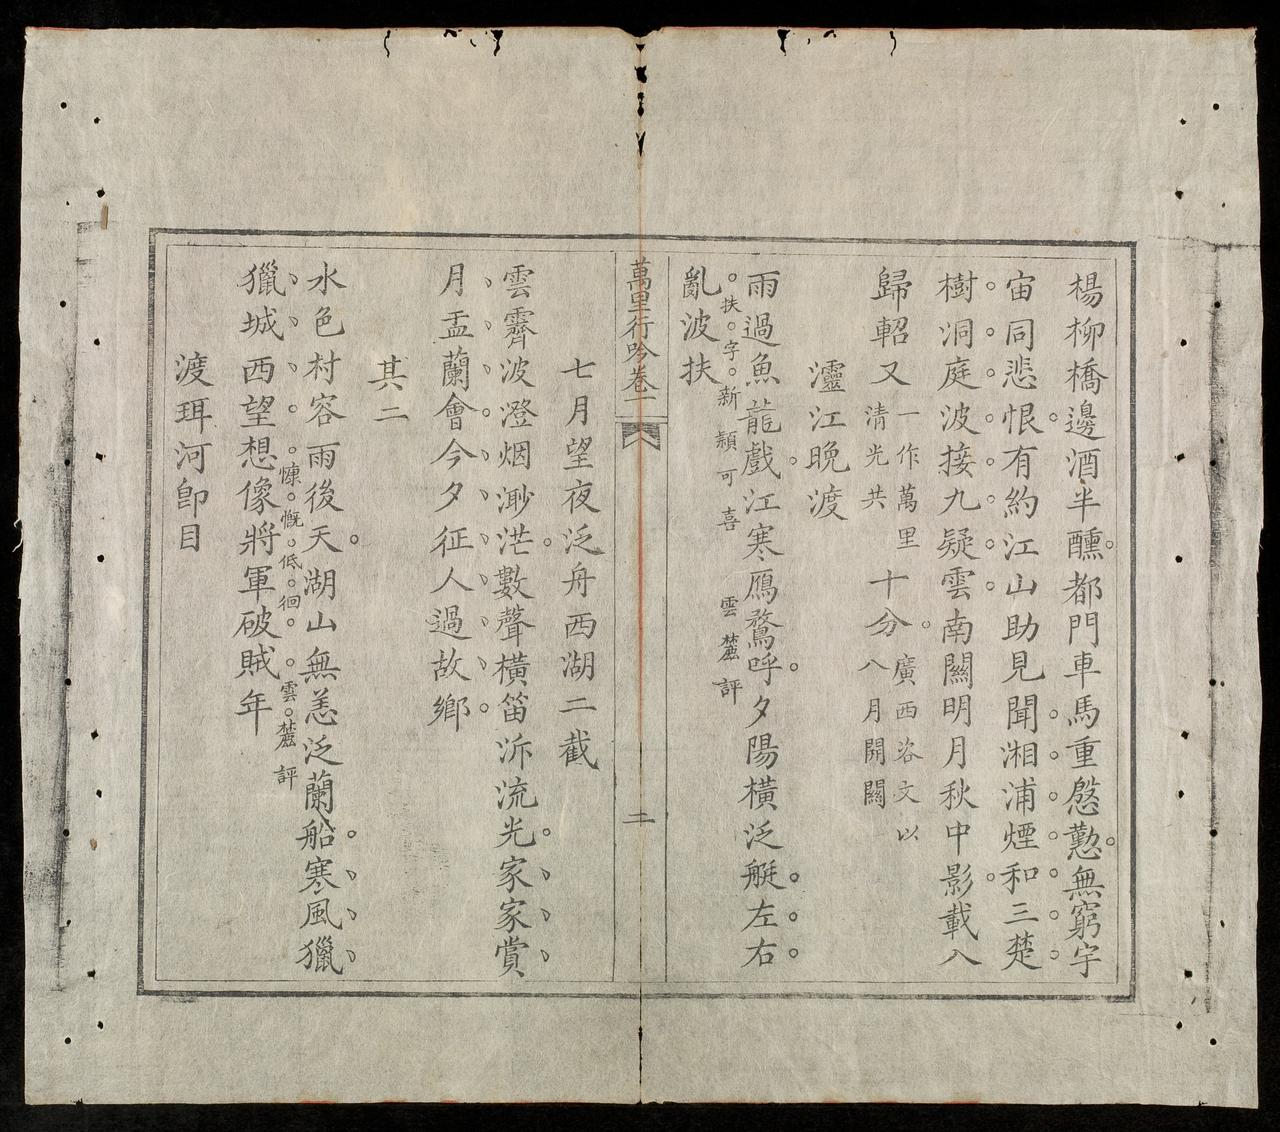 楊柳橋邊酒半醺都門車馬重慇懃無窮宇
宙同悲恨有約江山助見聞湘浦煙和三楚
樹洞庭波接九疑雲南關明月秋中影載八
歸軺又十分
一作萬里
清光共
廣西洺文以
八月開關
灅江晚渡
雨過魚龍戲江寒鴈鶩呼夕陽橫泛艇左右
扶字新穎可喜 雲麓評
亂波扶
萬里行吟卷一
二
七月望夜泛舟西湖二截
雲霽波澄烟渺茫數聲橫笛泝流光家家賞
月盂蘭會今夕征人過故鄉
其二
水色村容雨後天湖山無恙泛蘭船寒風獵
慷慨低徊 雲麓評
獵城西望想像將軍破賊年
渡珥河卽目